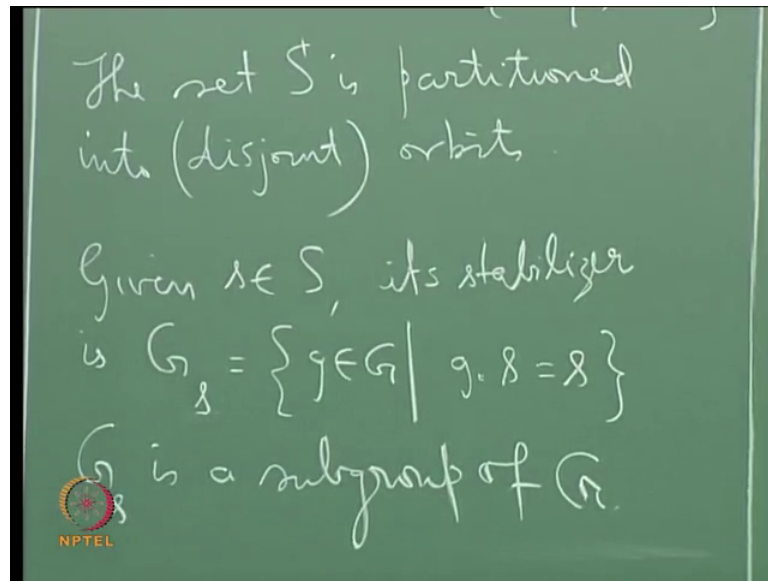 The set S is partitioned
into (disjoint) orbits.
Given s ∈ S, its stabilizer
is G_s = {g ∈ G | g.s = s}
G_s is a subgroup of G.
NPTEL